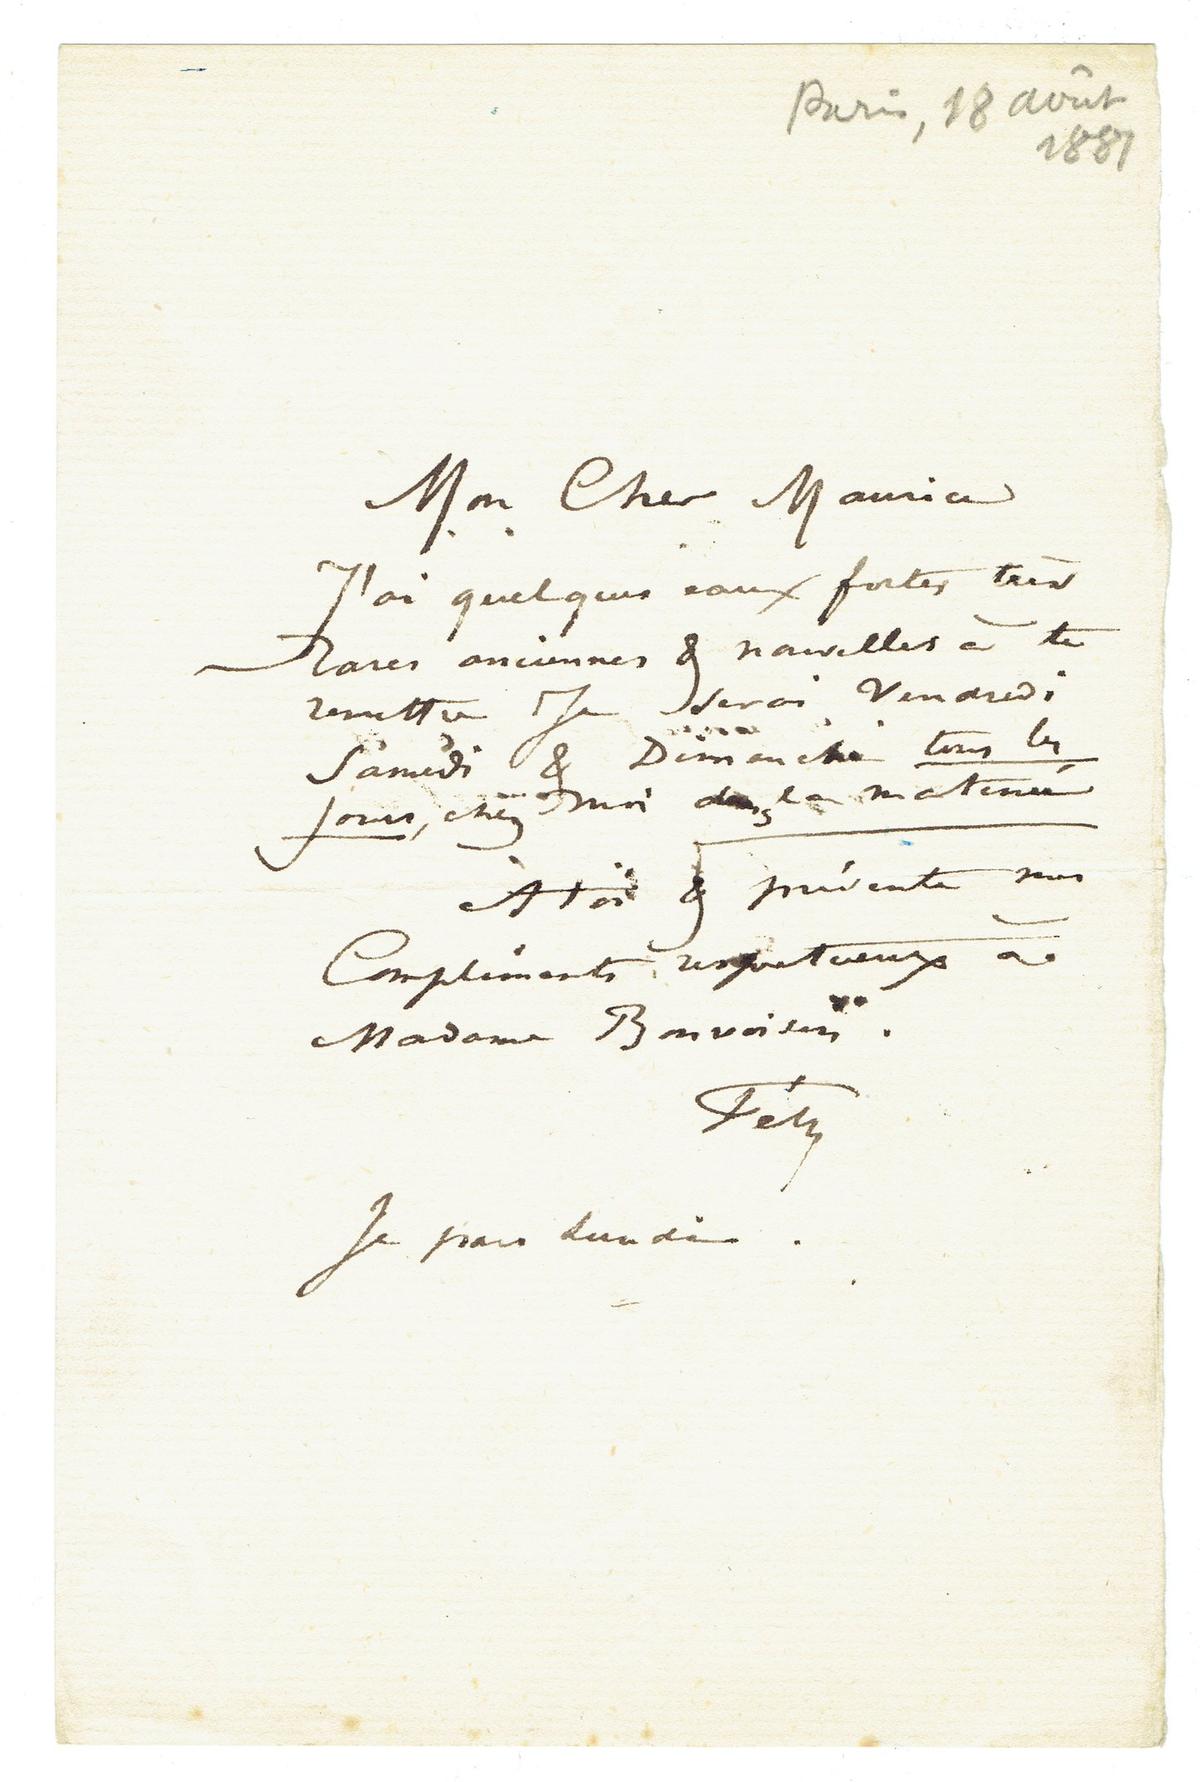 Paris, 18 août
1881
Mon Cher Maurice
J'ai quelques eaux fortes très
rares anciennes & nouvelles à te
remettre Je serai Vendredi
Samedi & Dimanche tous les
jours, chez moi dans la matinée
A toi & présente mes
Compliments respectueux à
Madame Bonvoisin.
Fély
Je pars Lundi.